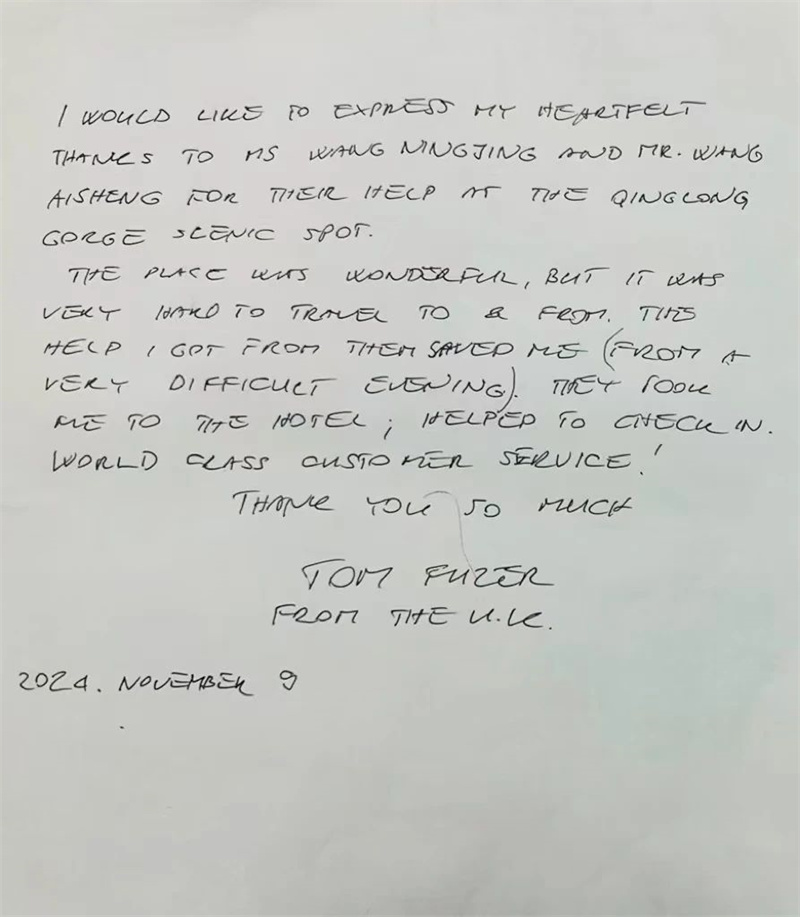 I WOULD LIKE TO EXPRESS MY HEARTFELT
THANKS TO MS WANG NINGJING AND MR. WANG
AISHENG FOR THEIR HELP AT THE QINGLONG
GORGE SCENIC SPOT.
THE PLACE WAS WONDERFUL, BUT IT WAS
VERY HARD TO TRAVEL TO & FROM. THE
HELP I GOT FROM THEM SAVED ME (FROM A
VERY DIFFICULT EVENING). THEY TOOK
ME TO THE HOTEL; HELPED TO CHECK IN.
WORLD CLASS CUSTOMER SERVICE!
THANK YOU SO MUCH
TOM FUZER
FROM THE U.K.
2024. NOVEMBER 9